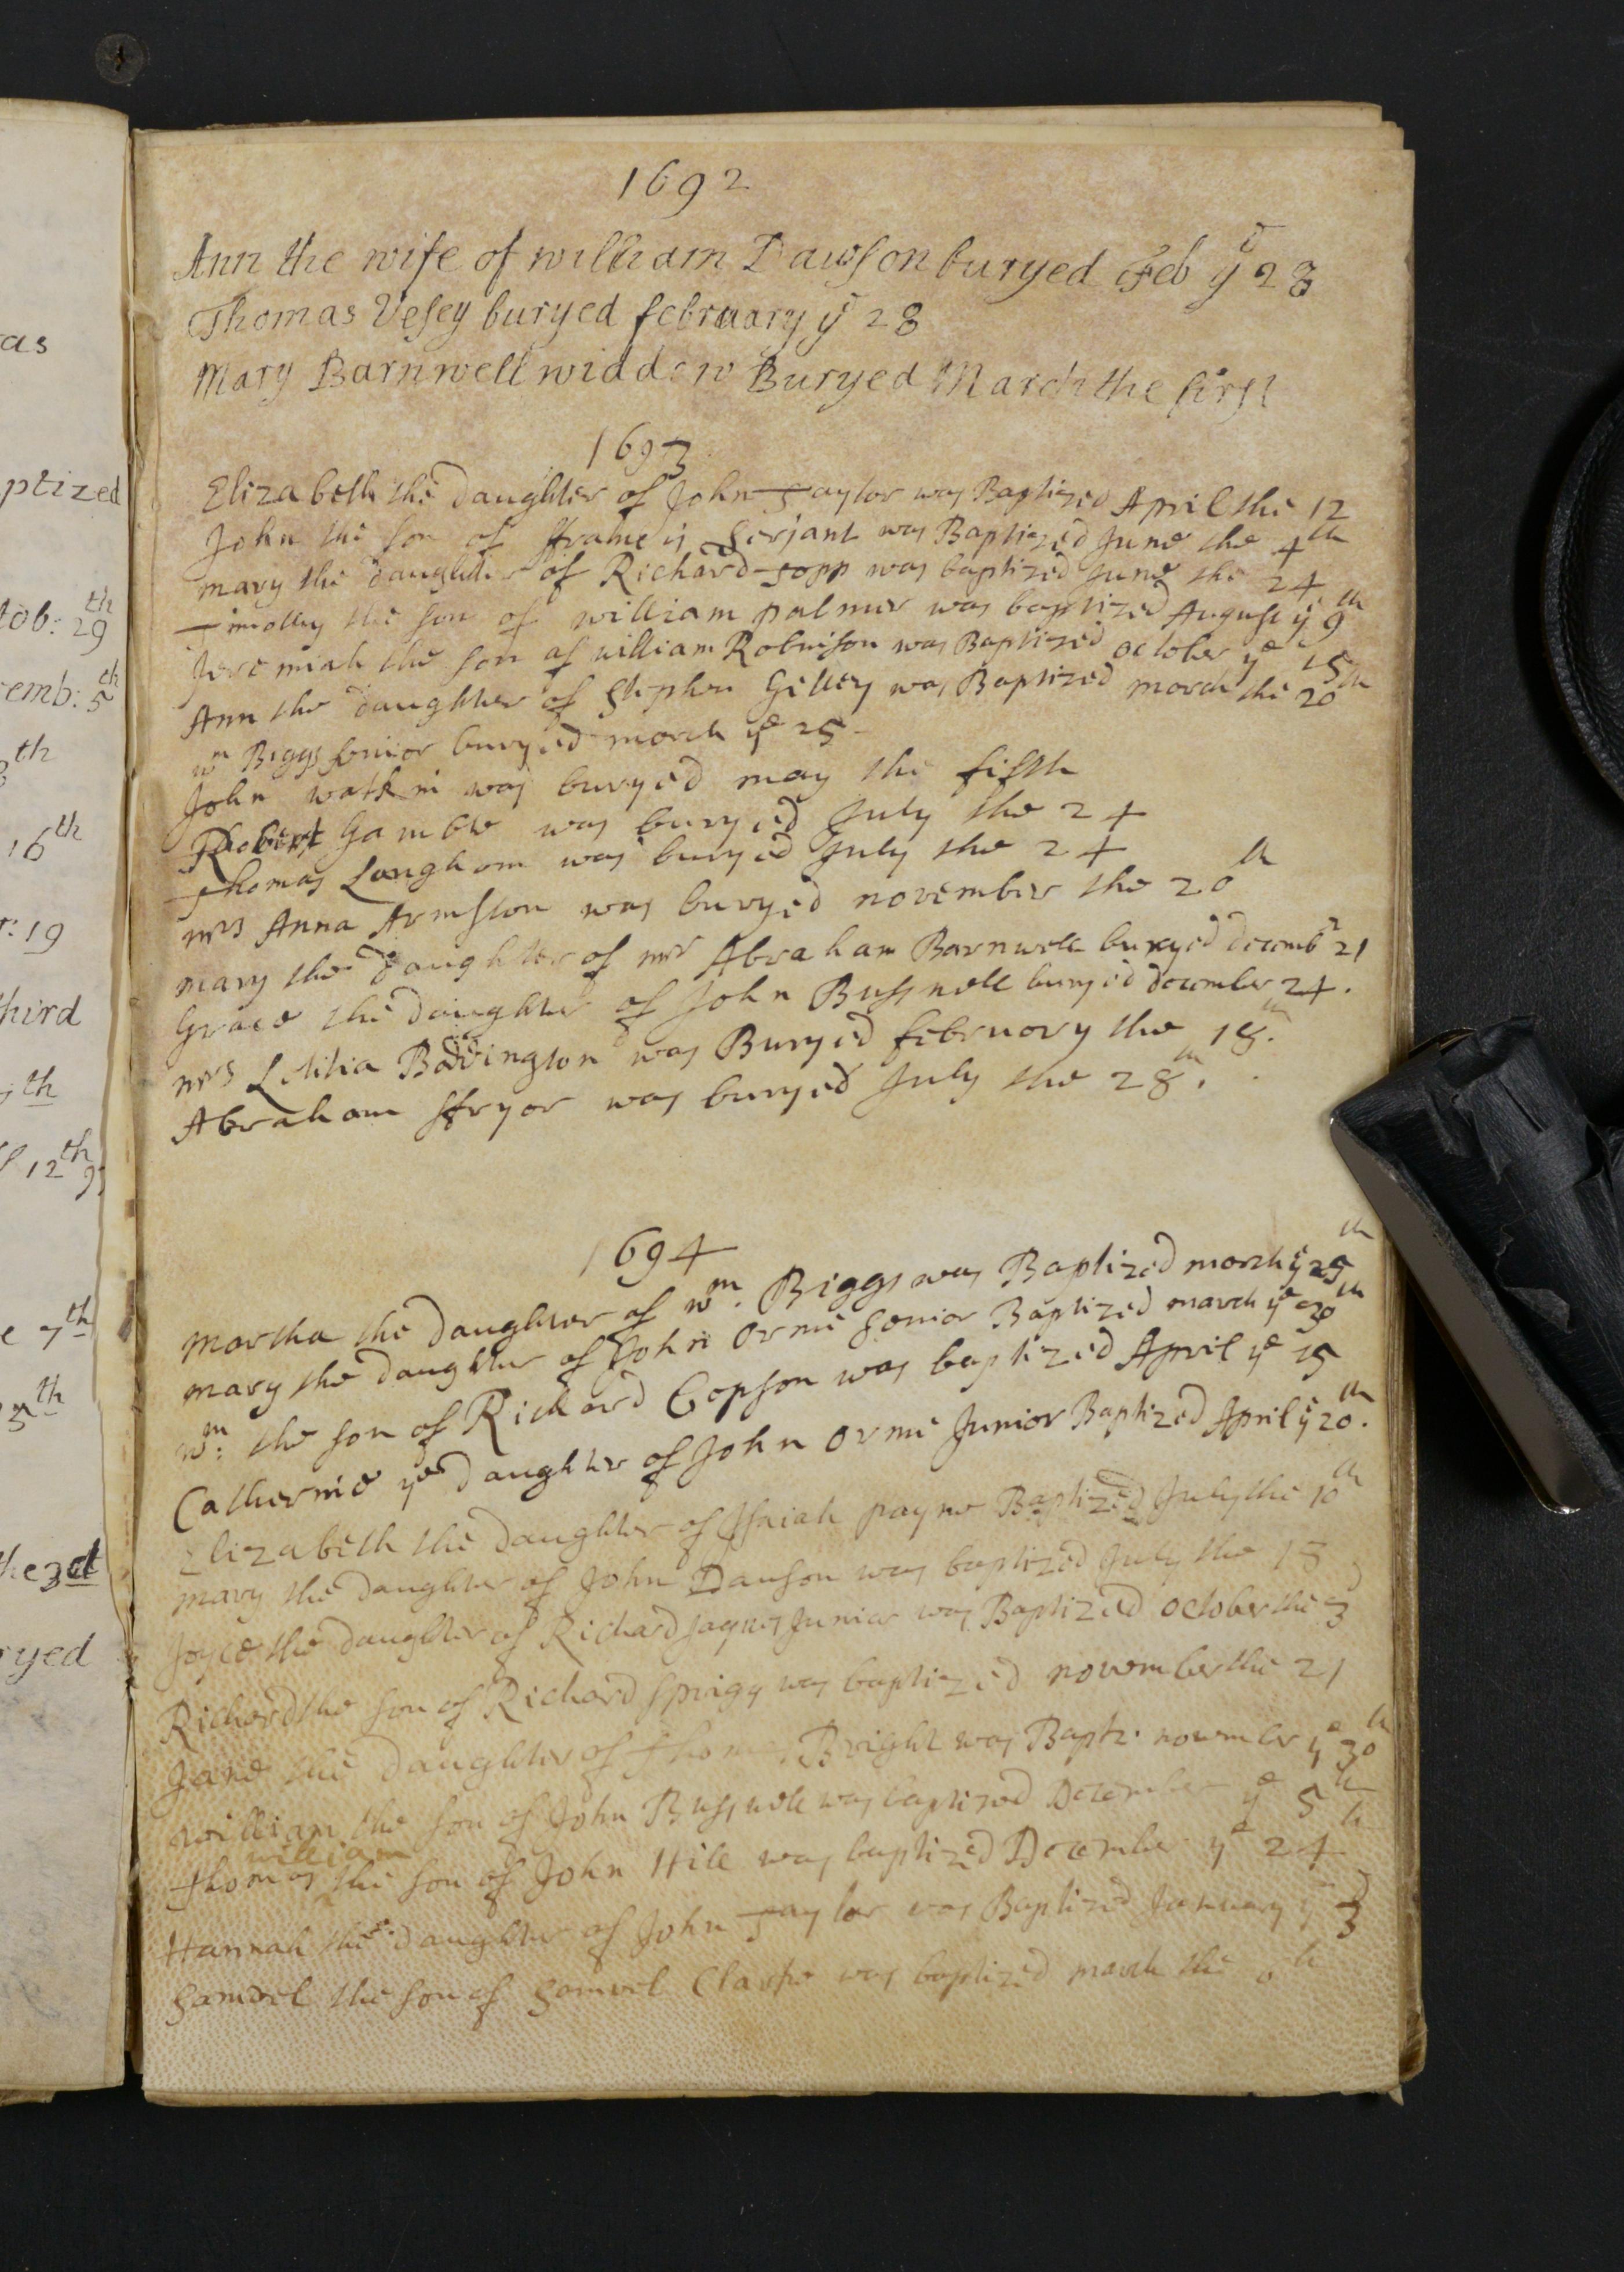 as
ptized
tob: 29th
emb: 5th
th
16th
r: 19
third
th
12th
e 7th
5th
the 3d
ryed
1692
Ann the wife of william Dawson buryed Feb ye 28
Thomas Vesey buryed february ye 28
Mary Barnwell widdow Buryed March the first
1693
Elizabeth the daughter of John Taylor was Baptized April the 12
John the son of ffrancis Serjant was Baptized June the 4th
mary the daughter of Richard Topp was baptized June the 24
Timothy the son of william palmer was baptized August ye 9th
Jeremiah the son of william Robinson was Baptized october ye 15th
Ann the daughter of Stephen Gilley was Baptized march the 20th
wm Biggs senior buryed march ye 25
John watkin was buryed may the fifth
Robert Gamble was buryed July the 24
Thomas Langham was buryed July the 24
mrs Anna Armston was buryed november the 20th
mary the daughter of mr Abraham Barnwell buryed decembr 21
Grace the daughter of John Bussnell buryed december 24.
mrs Letitia Boddington was Buryed february the 18th.
Abraham ffryor was buryed July the 28th.
1694
Martha the daughter of wm. Biggs was Baptized march ye 25th
mary the daughter of John Orme Senior Baptized march ye 30th
wm: the son of Richard Copson was baptized April ye 15
Catherine ye daughter of John Orme Junior Baptized April ye 20th.
Elizabeth the daughter of Isaiah payne Baptized July the 10th
mary the daughter of John Dawson was baptized July the 18
Joyce the daughter of Richard Jaques Junior was Baptized october the 3
Richard the son of Richard Sprigg was baptized november the 21
Jane the daughter of Thomas Bright was Baptz. november ye 30th
william the son of John Bussnell was baptized December ye 5th
william
thomas the son of John Hill was baptized December ye 24th
Hannah the daughter of John Taylor was Baptized January ye 3d
Samuel the son of Samuel Clarke was baptized march the